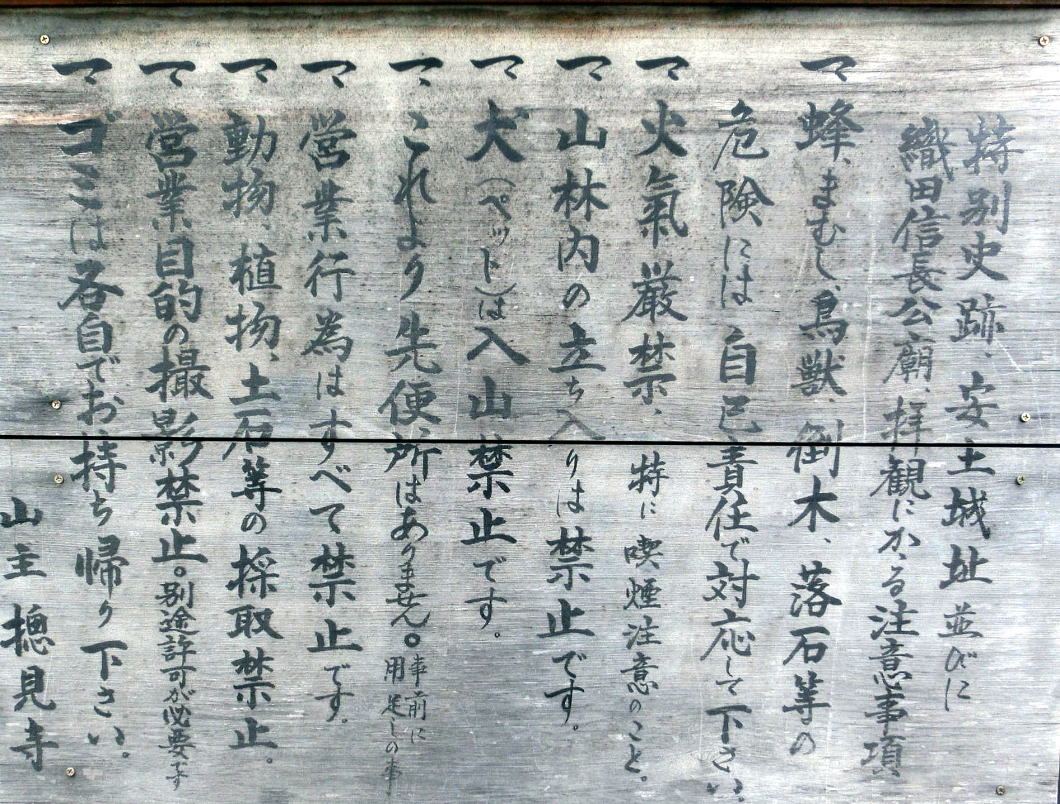 特別史跡、安土城址並びに
織田信長公廟、拝観にかゝる注意事項
一、蜂、まむし、鳥獣、倒木、落石等の
危険には自己責任で対応して下さい。
一、火氣厳禁、特に喫煙注意のこと。
一、山林内の立ち入りは禁止です。
一、犬(ペット)は入山禁止です。
一、これより先便所はありません。事前に用足しの事
一、営業行為はすべて禁止です。
一、動物、植物、土石等の採取禁止。
一、営業目的の撮影禁止。別途許可が必要です
一、ゴミは各自でお持ち帰り下さい。
山主 摠見寺